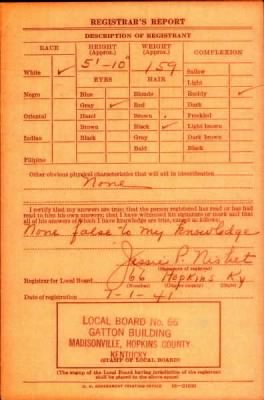 REGISTRAR'S REPORT
DESCRIPTION OF REGISTRANT
RACE HEIGHT (Approx.) WEIGHT (Approx.) COMPLEXION
White ✓ 5'-10" 159 Sallow
EYES HAIR Light
Negro Blue Blonde Ruddy ✓
Gray ✓ Red Dark
Oriental Hazel Brown Freckled
Brown Black ✓ Light brown
Indian Black Gray Dark brown
Bald Black
Filipino
Other obvious physical characteristics that will aid in identification
None
I certify that my answers are true; that the person registered has read or has had
read to him his own answers; that I have witnessed his signature or mark and that
all of his answers of which I have knowledge are true, except as follows:
None false to my knowledge
Jessie P. Nisbet
(Signature of registrar)
Registrar for Local Board 66 Hopkins Ky
(Number) (City or county) (State)
Date of registration 7-1-41
LOCAL BOARD No. 66
GATTON BUILDING
MADISONVILLE, HOPKINS COUNTY
KENTUCKY
(STAMP OF LOCAL BOARD)
(The stamp of the Local Board having jurisdiction of the registrant
shall be placed in the above space)
U. S. GOVERNMENT PRINTING OFFICE